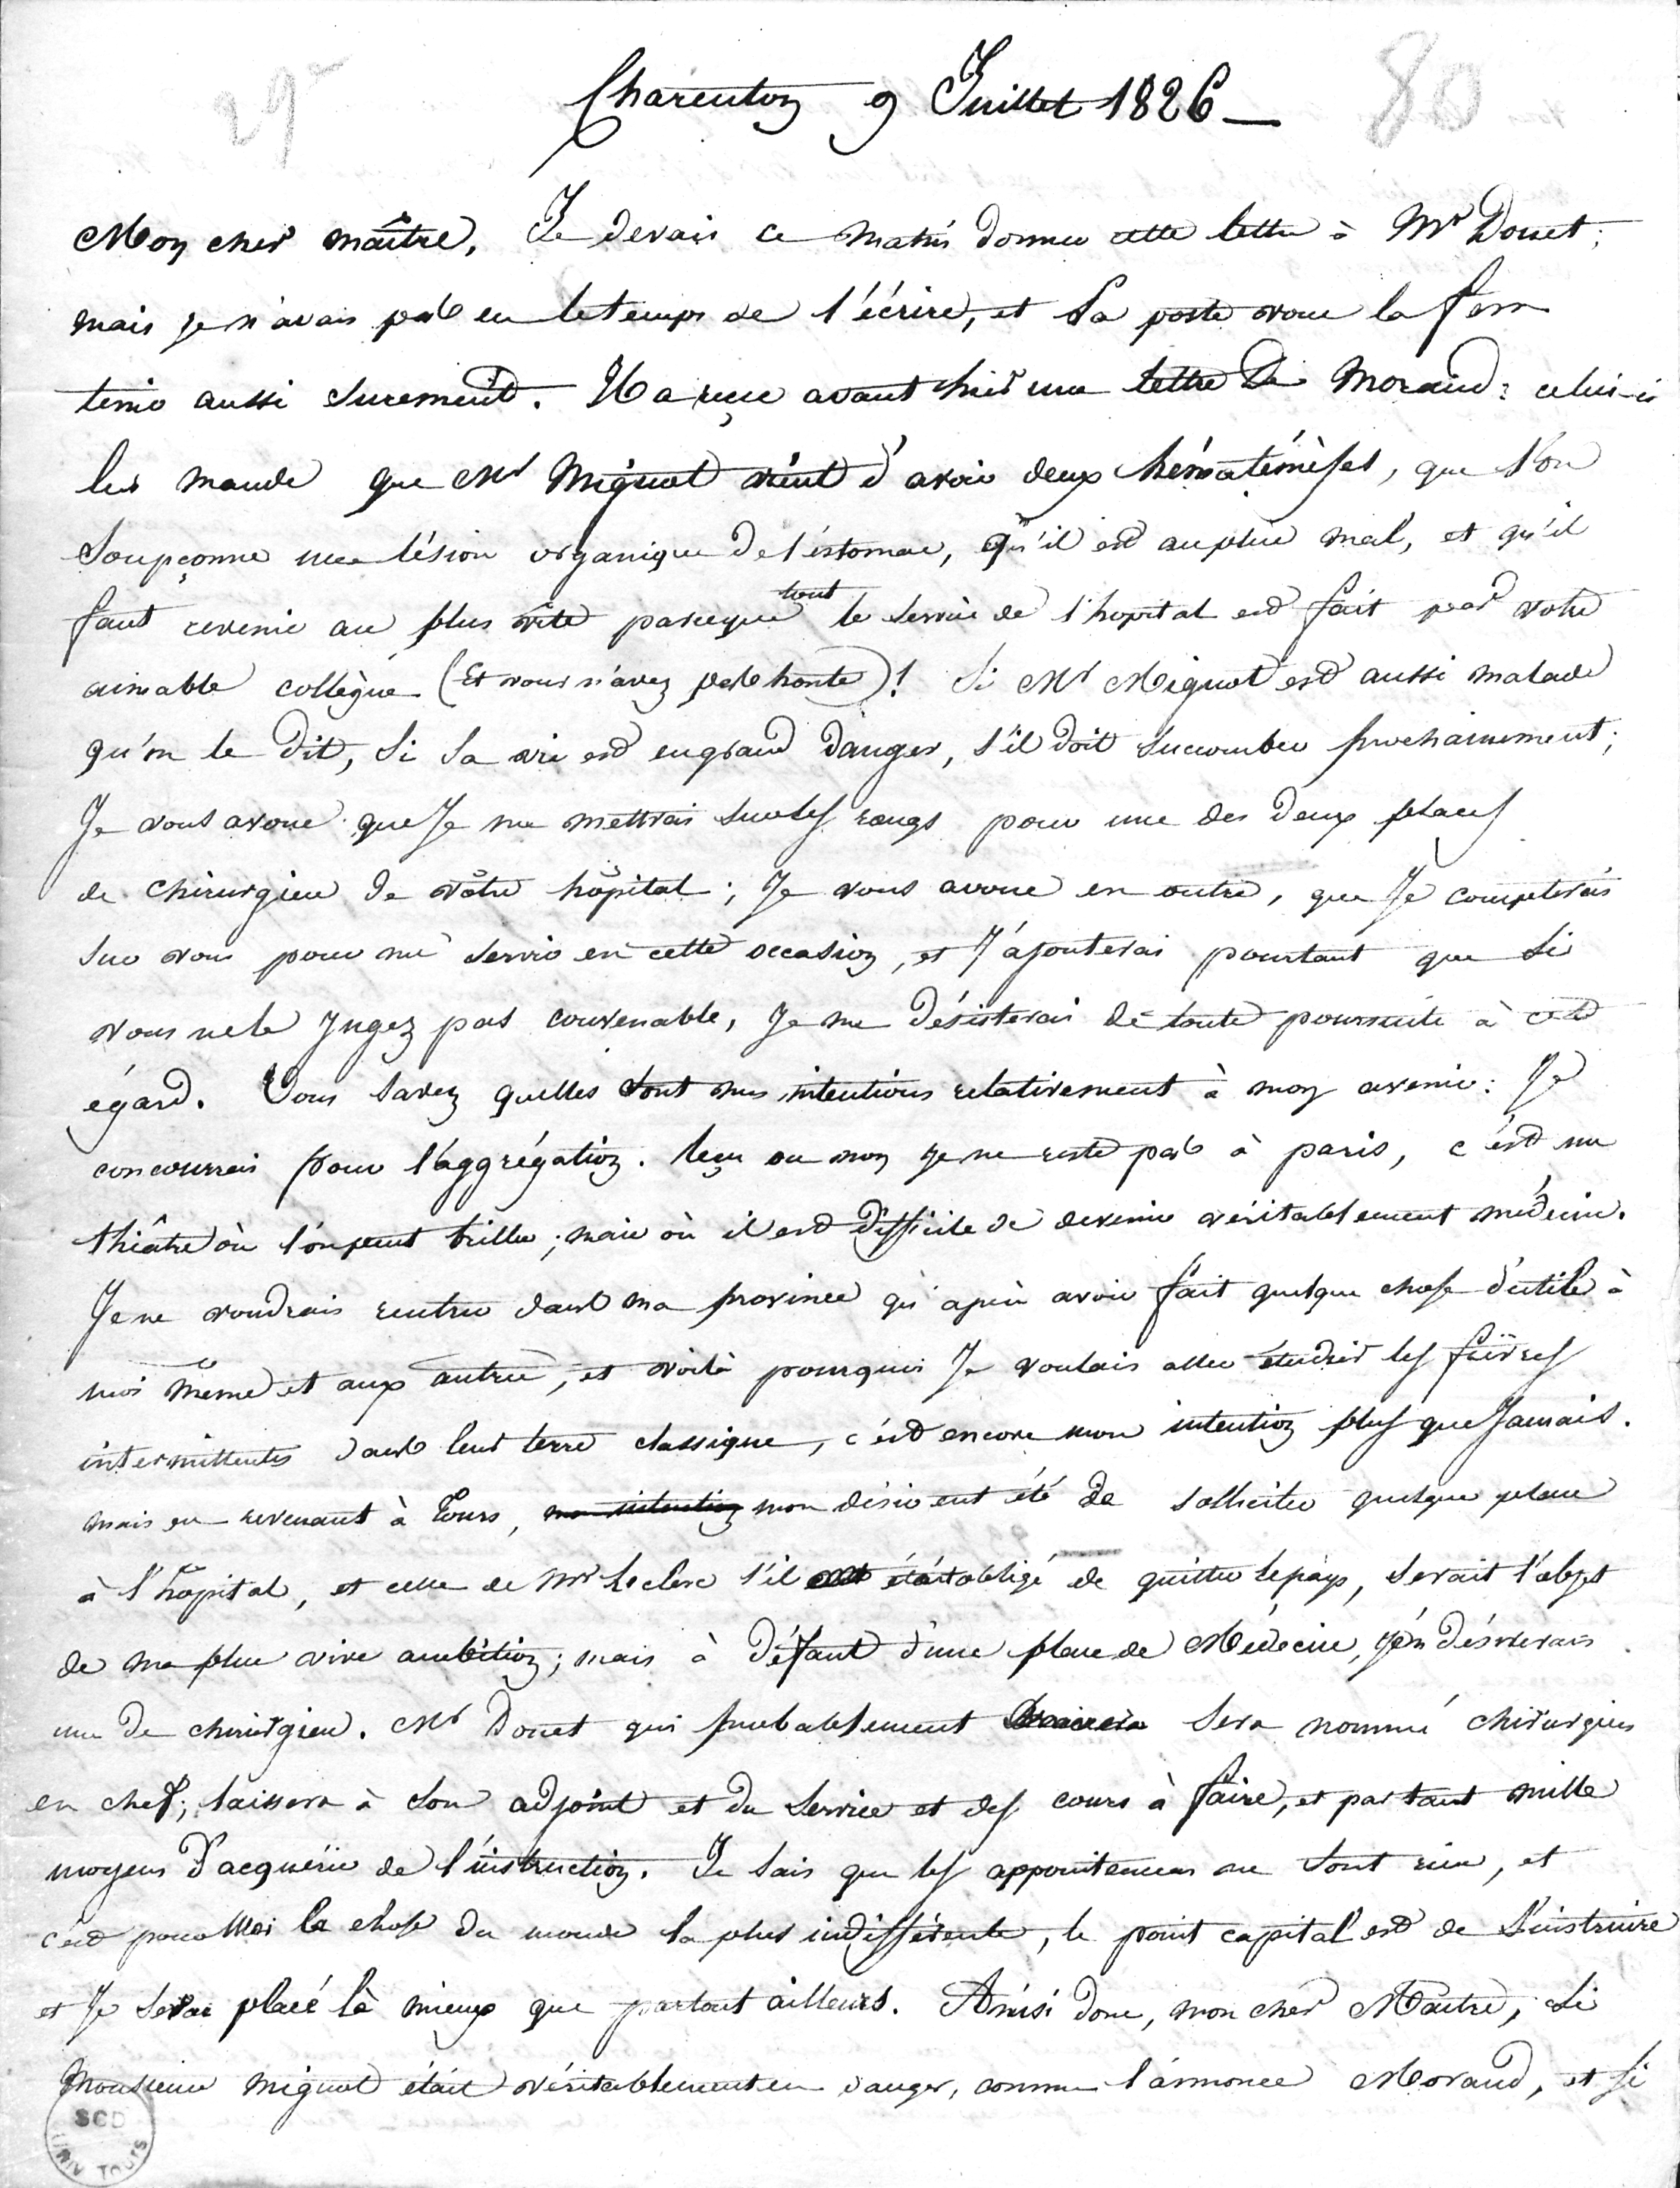 29
80
Charenton 9 Juillet 1826 –
Mon cher maître, Je devais ce matin donner cette lettre à Mr Douet;
mais je n'avais pas eu le temps de l'écrire, et la poste vous la fera
tenir aussi surement. Il a reçu avant hier une lettre de Moraud: celui-ci
lui mande que Mr Mignot vient d'avoir deux hématémèses, que l'on
soupçonne une lésion organique de l'estomac, qu'il est au plus mal, et qu'il
faut revenir au plus vite parceque tout le service de l'hopital est fait par votre
aimable collègue (et vous n'avez pas honte)! Si Mr Mignot est aussi malade
qu'on le dit, si sa vie est en grand danger, s'il doit succomber prochainement;
Je vous avoue que Je me mettrais sur les rangs pour une des deux places
de chirurgien de vôtre hôpital; Je vous avoue en outre, que Je compterais
sur vous pour me servir en cette occasion, et J'ajouterai pourtant que si
vous ne le Jugez pas convenable, Je me désisterai de toute poursuite à cet
égard. Vous savez quelles sont mes intentions relativement à mon avenir: Je
concourrai pour l'aggrégation. reçu ou non je ne reste pas à paris, c'est un
théâtre où l'on peut briller; mais où il est difficile de devenir véritablement médecin.
Je ne voudrais rentrer dans ma province qu'après avoir fait quelque chose d'utile à
moi même et aux autres, et voilà pourquoi Je voulais aller étudier les fièvres
intermittentes dans leur terre classique, c'est encore mon intention plus que Jamais.
mais en revenant à Tours, mon intention mon désir eut été de solliciter quelque place
à l'hôpital, et celle de Mr Leclerc s'il était obligé de quitter le pays, serait l'objet
de ma plus vive ambition; mais à défaut d'une place de Médecin, j'en désirerais
une de chirurgien. Mr Douet qui probablement sera nommé chirurgien
en chef, laissera à son adjoint et du service et des cours à faire, et partant mille
moyens d'acquérir de l'instruction. Je sais que les appointemens ne sont rien, et
c'est pour Moi la chose du monde la plus indifférente, le point capital est de s'instruire
et Je serai placé là mieux que partout ailleurs. Ainsi donc, mon cher Maitre, si
Monsieur Mignot était véritablement en danger, comme l'annonce Moraud, et si
SCD
UNIV TOURS